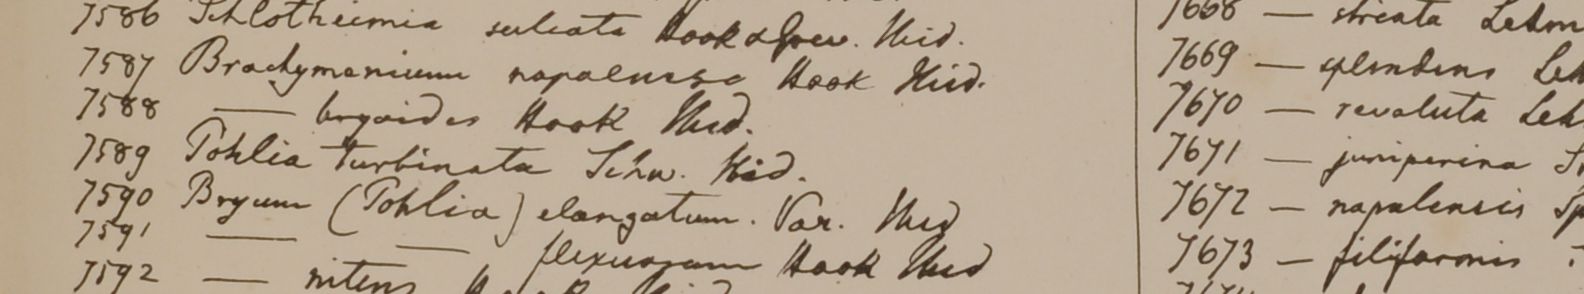 7586 Schlotheimia sulcata Hook & Grev. Ibid.
7587 Brachymenium napalense Hook Ibid.
7588 — bryoides Hook Ibid.
7589 Pohlia turbinata Schw. Ibid.
7590 Bryum (Pohlia) elongatum. Var. Ibid
7591 — — flexuosum Hook Ibid
7592 — nitens Hook
7668 — striata Lehm
7669 — splendens Leh
7670 — revoluta Leh
7671 — juniperina
7672 — napalensis Sp
7673 — filiformis ?